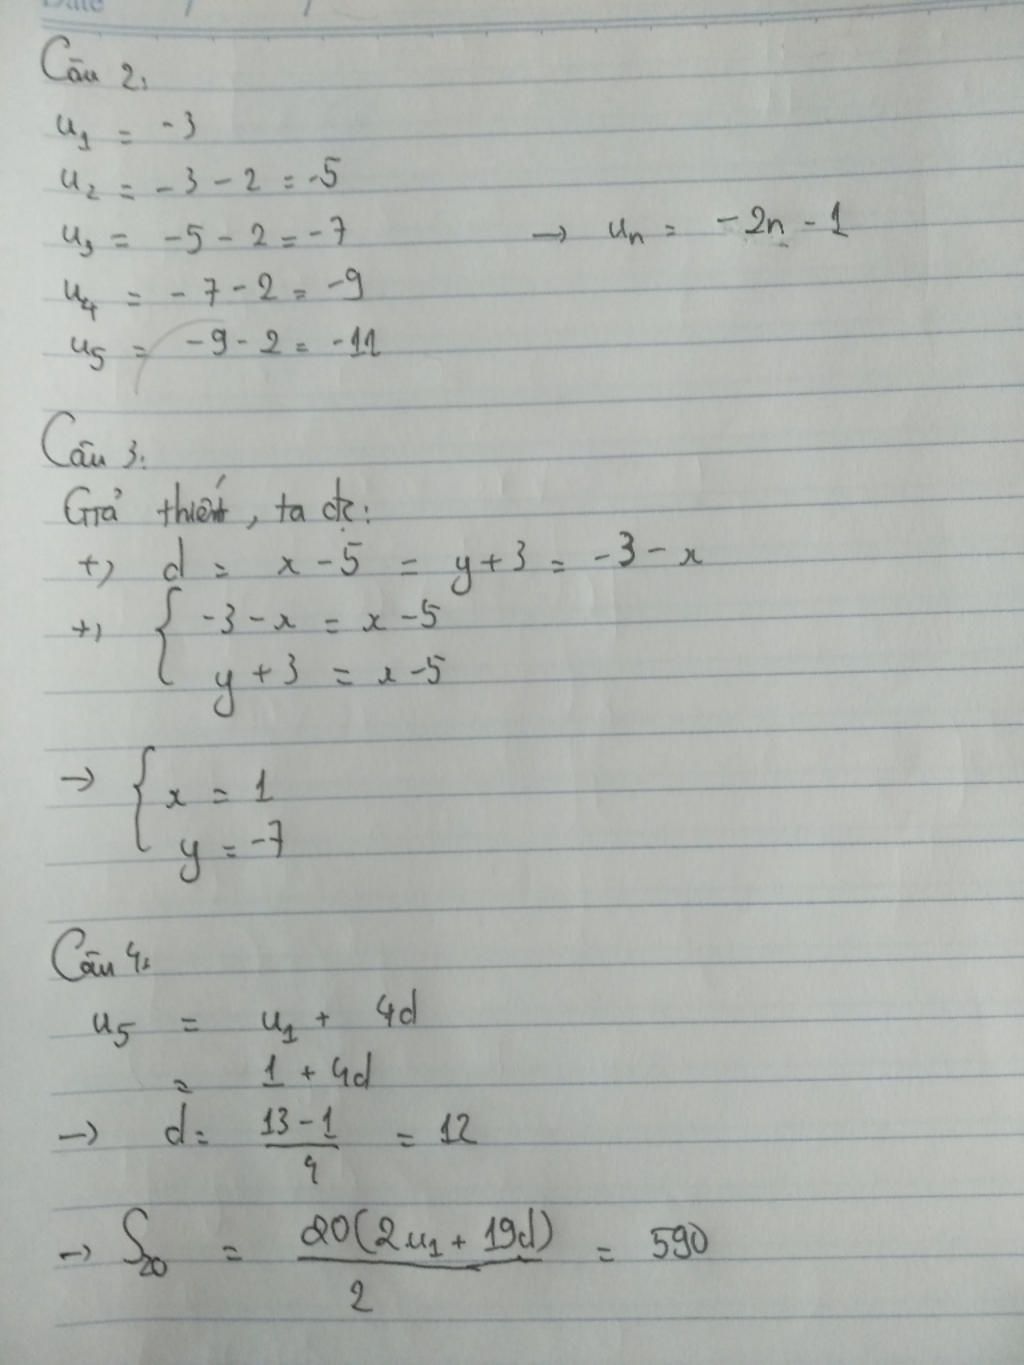 Date / /
Câu 2:
u₁ = -3
u₂ = -3 - 2 = -5
u₃ = -5 - 2 = -7 → uₙ = -2n - 1
u₄ = -7 - 2 = -9
u₅ = -9 - 2 = -11
Câu 3:
Giả thiết, ta đc:
+) d = x - 5 = y + 3 = -3 - x
+) { -3 - x = x - 5
y + 3 = x - 5
→ { x = 1
y = -7
Câu 4:
u₅ = u₁ + 4d
= 1 + 4d
→ d = (13 - 1)/4 = 12
→ S₂₀ = 20(2u₁ + 19d)/2 = 590